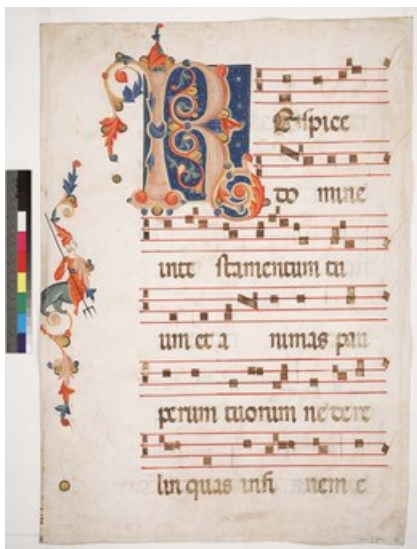 Respice
do mine
inte stamentum tu
um et a nimas pau
perum tuorum ne dere
lin quas infi nem e